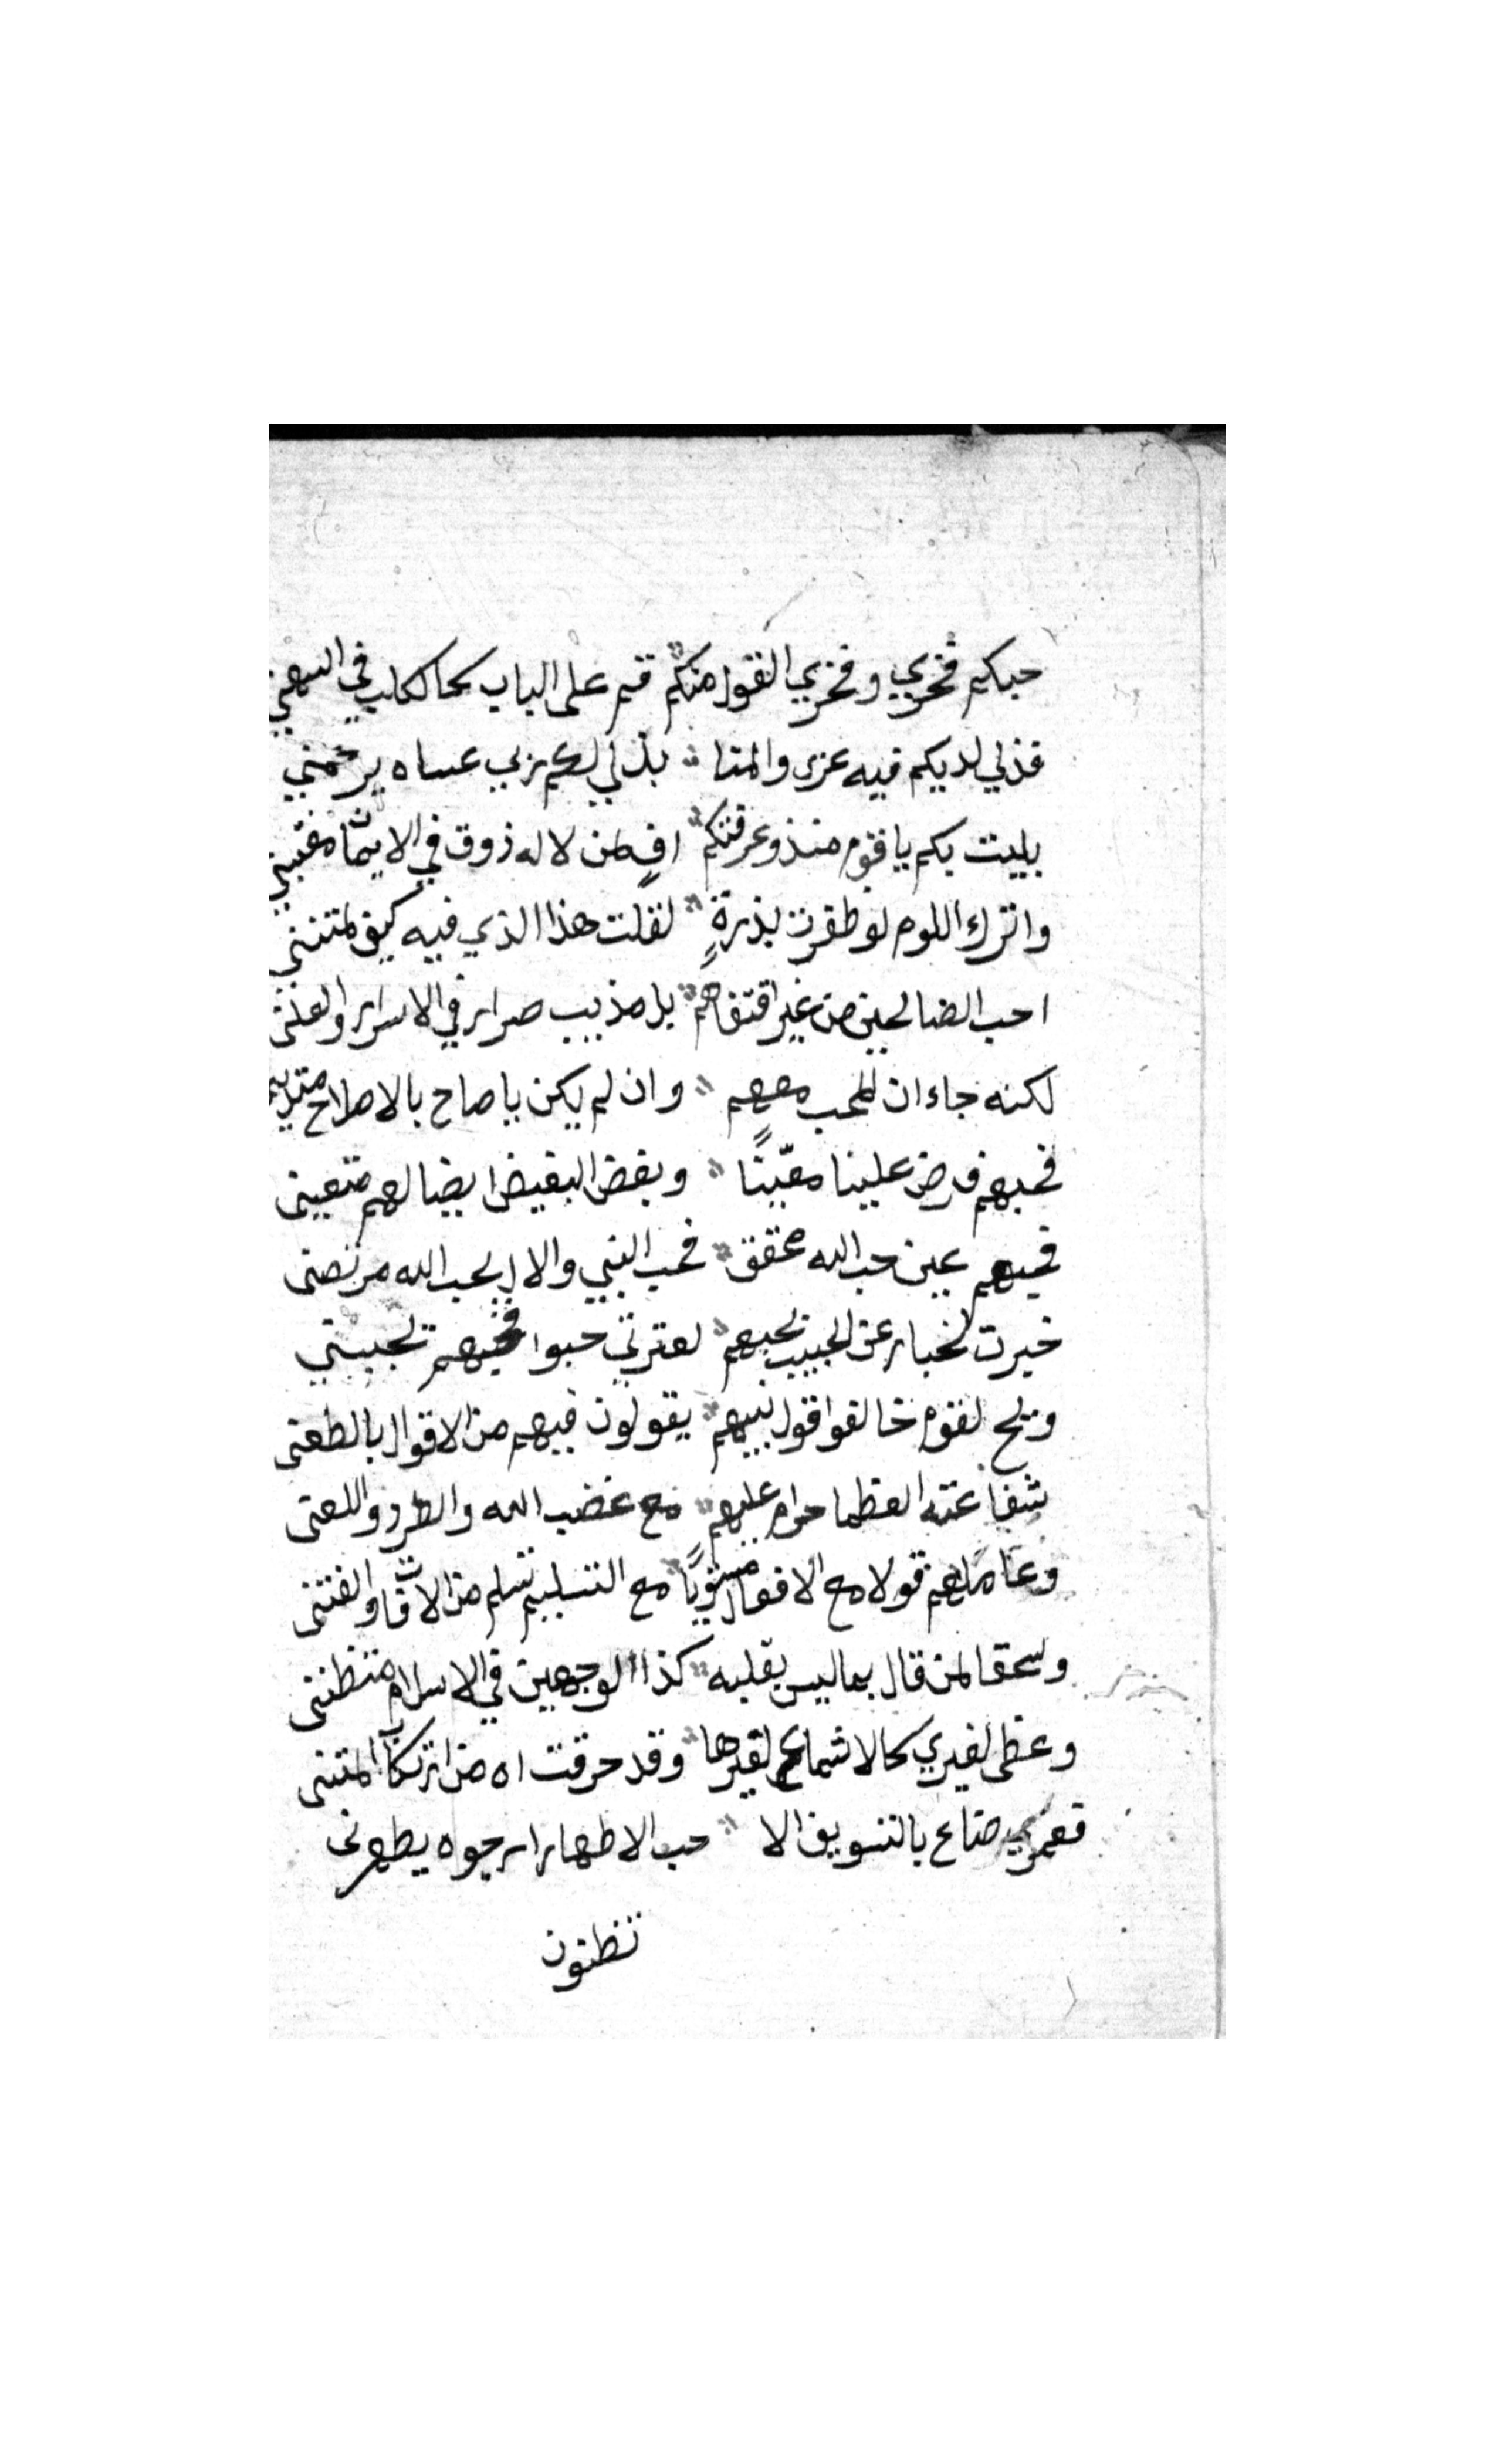 حبكم فخري وفخري القول منكم قم على الباب كحا لكلب في
فذلي لديكم فيه عزي والمنا بذلي لكم ربي عساه يرحمني
بليت بكم يا قوم منذو عرفتكم افٍ لمن لا له ذوق في الايمان
واترك اللوم لو ظفرت بذرةٍ لقلت هذا الذي فيه كيف
احب الصالحين من غير اقتفاهم بل مذبب صرار في الاسرار والعلنى
لكنه جاء ان المحب معهم وان لم يكن يا صاح بالاصلاح
فحبهم فرض علينا معّينًا وبغض البغيض ايضا لهم متعينى
فحبهم عين حب الله محقق فحب النبي والال بحب الله مرتضى
خيرت لخبار عن الحبيب بحبهم لعترتي حبوا فحبهم تجبيتي
ويح لقوم خالفوا قول نبيهم يقولون فيهم من الاقوال بالطعنى
شفاعته العظما حرام عليهم مع غضب الله والطرد واللعنى
وعاملهم قولا مع الافعال مستويًا مع التسليم تسلم من الافات والفتنى
وسحقا لمن قال بما ليس بقلبه كذا الوجهين في الاسلام
وعظى لغيري كحالا شماع لغيرها وقد حرقت اه من
فعمري ضاع بالتسويف الا حب الاطهار ارجوه يطهرنى
تظنون